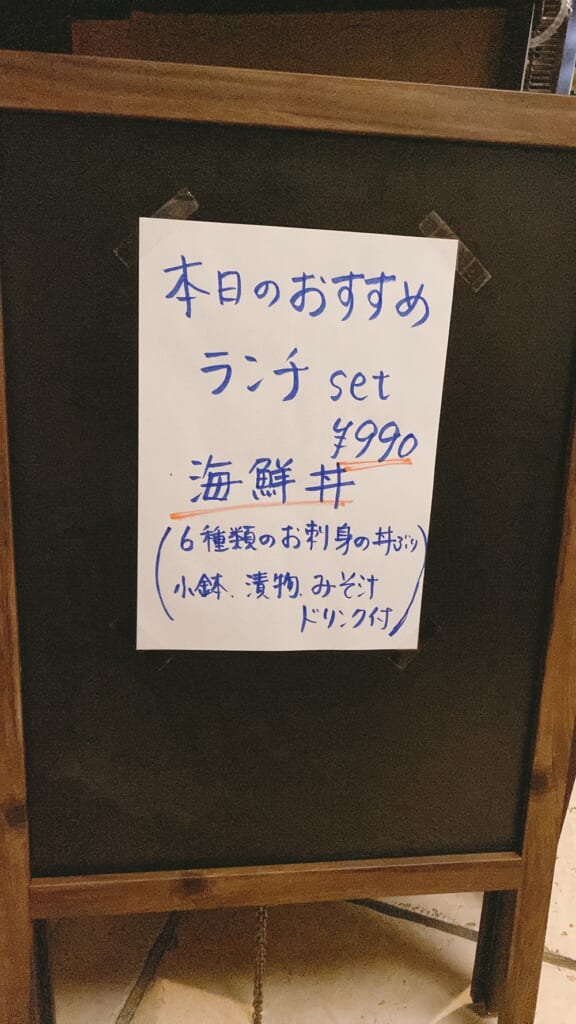 本日のおすすめ
ランチ set
¥990
海鮮丼
(6種類のお刺身の丼ぶり
小鉢、漬物、みそ汁
ドリンク付)